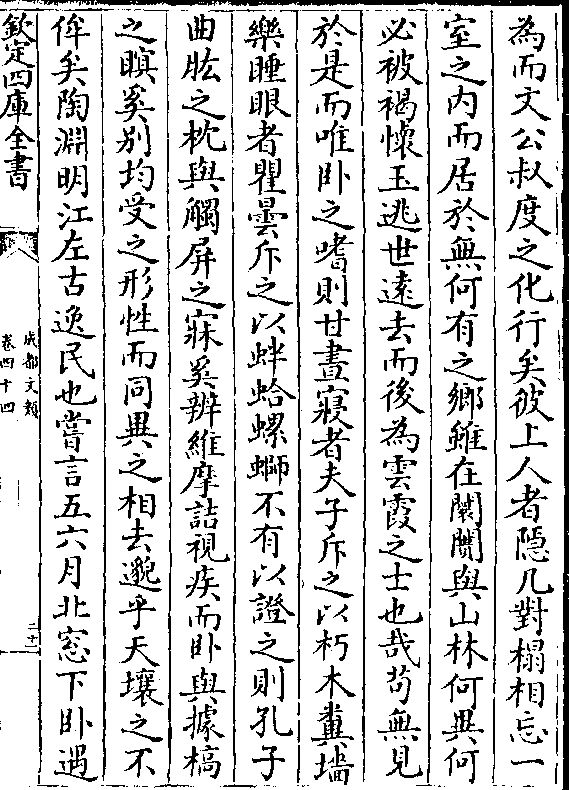 為而文公叔度之化行矣彼上人者隱几對榻相忘一
室之内而居於無何有之鄉雖在闤闠與山林何異何
必被褐懷玉逃世遠去而後為雲霞之士也哉苟無見
於是而唯卧之嗜則甘晝寢者夫子斥之以朽木糞墻
樂睡眠者瞿曇斥之以蚌蛤螺螄不有以證之則孔子
曲肱之枕與觸屏之寐奚辨維摩詰視疾而卧與據槁
之瞑奚别均受之形性而同異之相去邈乎天壤之不
侔矣陶淵明江左古逸民也嘗言五六月北窓下卧遇
欽定四庫全書
成都文類
卷四十四
二十一